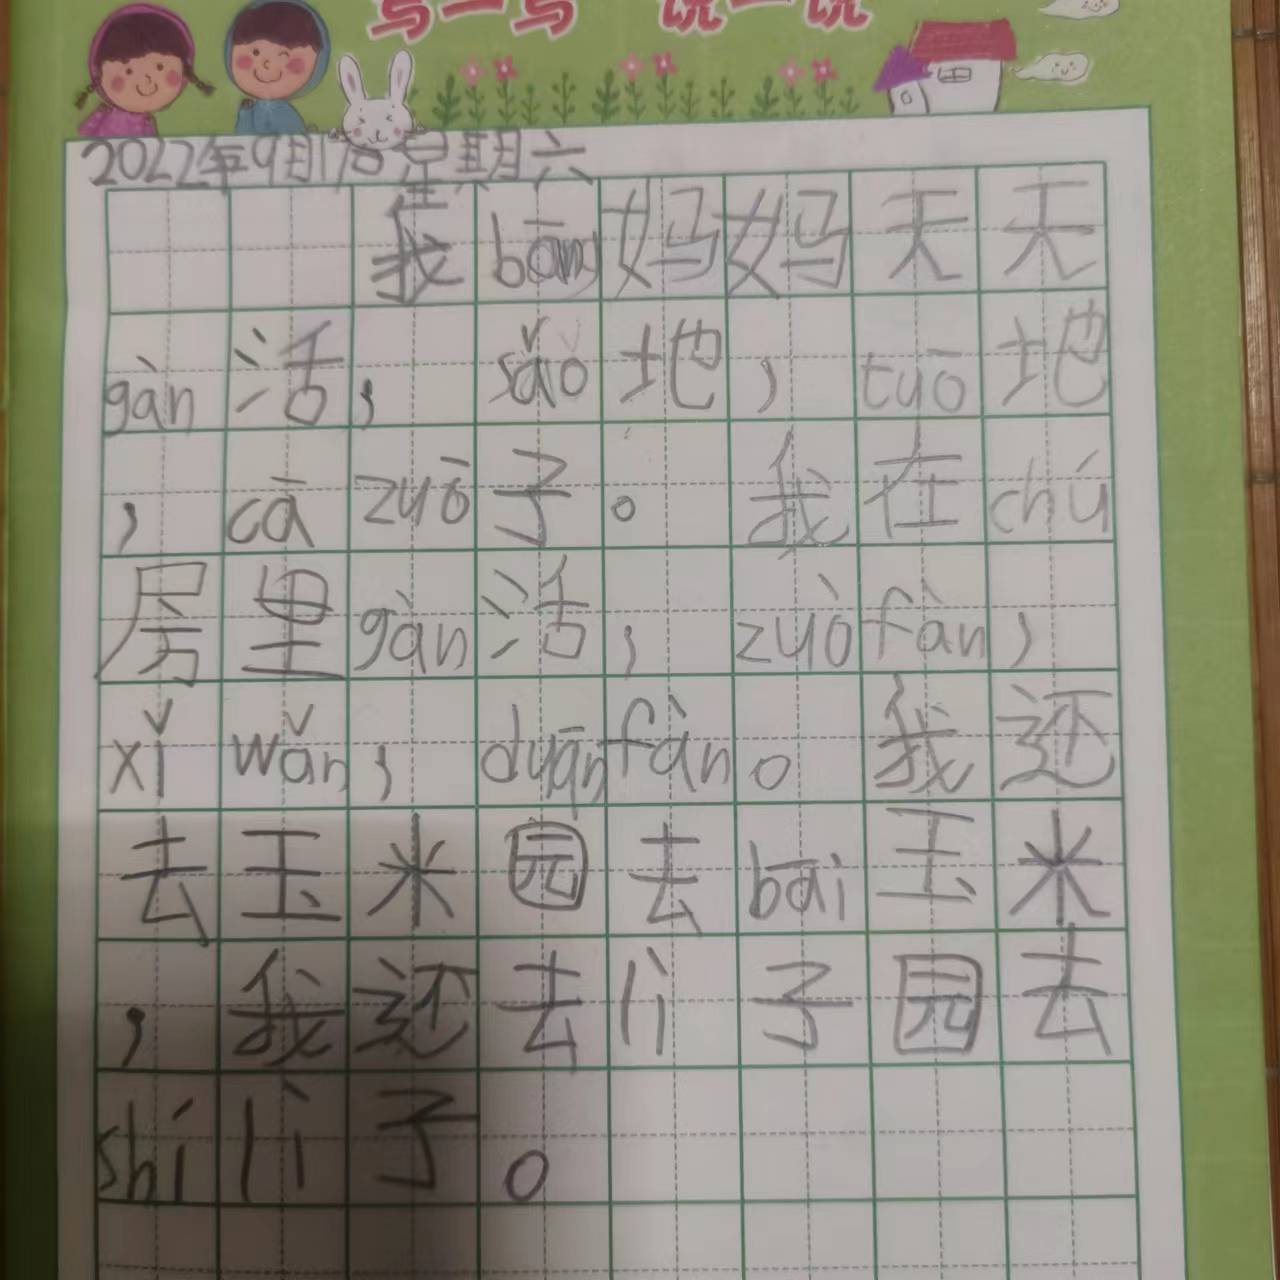 写一写 说一说
2022年9月17日星期六
我bāng妈妈天天
gàn活，sǎo地，tuō地
，cā zuō子。我在chú
房里gàn活，zuòfàn，
xǐ wǎn，duānfàn。我还
去玉米园去bāi玉米
，我还去lì子园去
shí lì子。